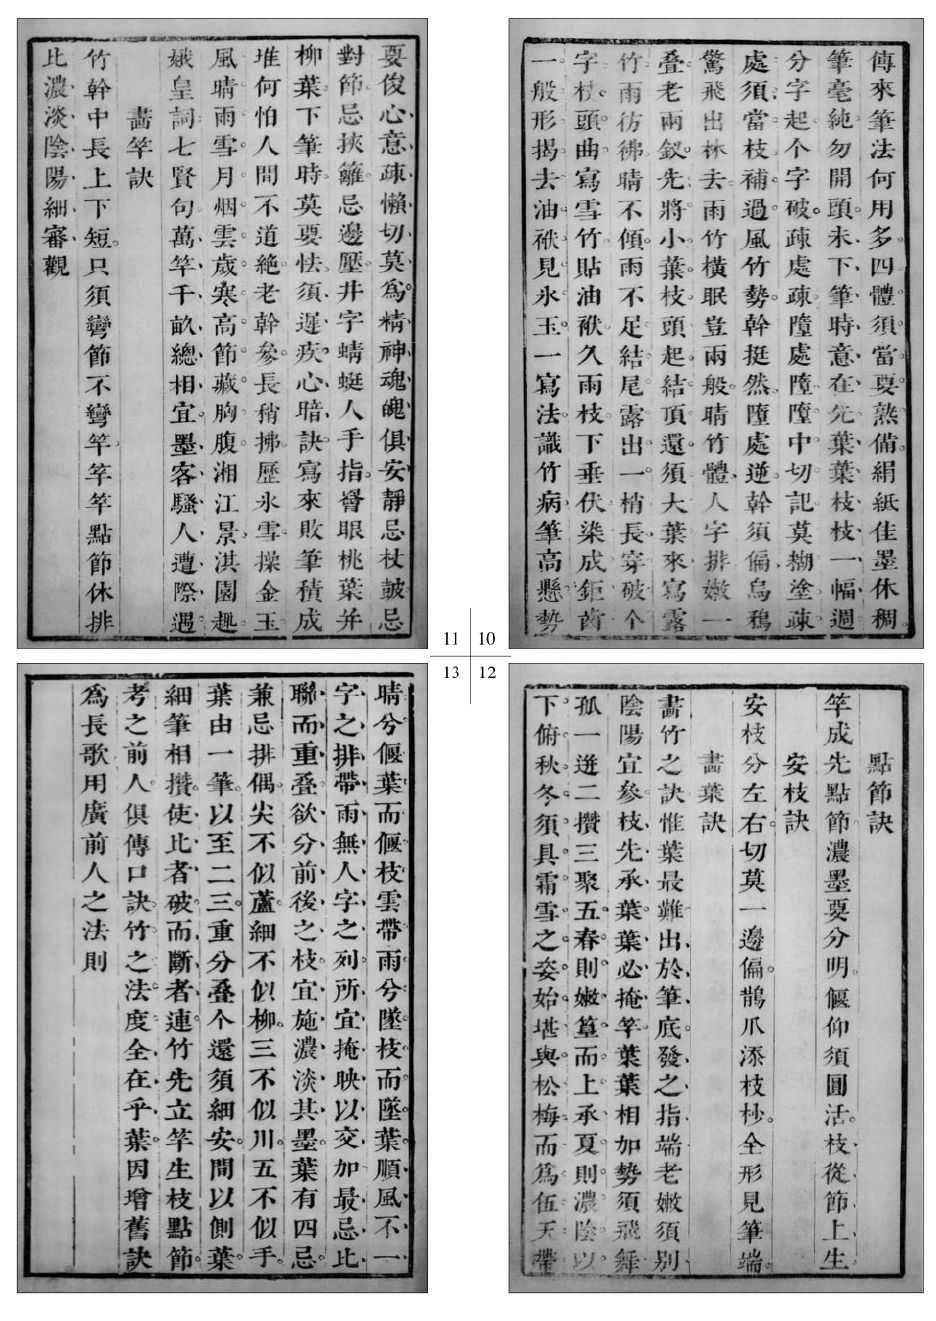 傳來筆法何用多四體須當要熟備絹紙佳墨休稠
筆毫純勿開頭未下筆時意在先葉葉枝枝一幅週
分字起个字破疎處疎墮處墮墮中切記莫糊塗疎
處須當枝補過風竹勢幹挺然墮處逆幹須偏烏鴉
驚飛出林去雨竹橫眠豈兩般晴竹體人字排嫩一
叠老兩釵先將小葉枝頭起結頂還須大葉來寫露
竹雨彷彿晴不傾雨不足結尾露出一梢長穿破个
字枝頭曲寫雪竹貼油袱久雨枝下垂伏染成鉅齒
一般形揭去油袱見氷玉一寫法識竹病筆高懸勢
10
要俊心意疎懶切莫為精神魂魄俱安靜忌杖皷忌
對節忌挾籬忌邊壓井字蜻蜓人手指罾眼桃葉并
柳葉下筆時莫要怯須遲疾心暗訣寫來敗筆積成
堆何怕人間不道絕老幹參長稍拂歷氷雪操金玉
風晴雨雪月烟雲歲寒高節藏胸腹湘江景淇園趣
娥皇詞七賢句萬竿千畝總相宜墨客騷人遭際遇
畵竿訣
竹幹中長上下短只須彎節不彎竿竿竿點節休排
比濃淡陰陽細審觀
11
點節訣
竿成先點節濃墨要分明偃仰須圓活枝從節上生
安枝訣
安枝分左右切莫一邊偏鵲爪添枝杪全形見筆端
畵葉訣
畵竹之訣惟葉最難出於筆底發之指端老嫩須別
陰陽宜參枝先承葉葉必掩竿葉葉相加勢須飛舞
孤一迸二攢三聚五春則嫩篁而上承夏則濃陰以
下俯秋冬須具霜雪之姿始堪與松梅而為伍天帶
12
晴兮偃葉而偃枝雲帶雨兮墜枝而墜葉順風不一
字之排帶雨無人字之列所宜掩映以交加最忌比
聯而重叠欲分前後之枝宜施濃淡其墨葉有四忌
兼忌排偶尖不似蘆細不似柳三不似川五不似手
葉由一筆以至二三重分叠个還須細安間以側葉
細筆相攢使比者破而斷者連竹先立竿生枝點節
考之前人俱傳口訣竹之法度全在乎葉因增舊訣
為長歌用廣前人之法則
13